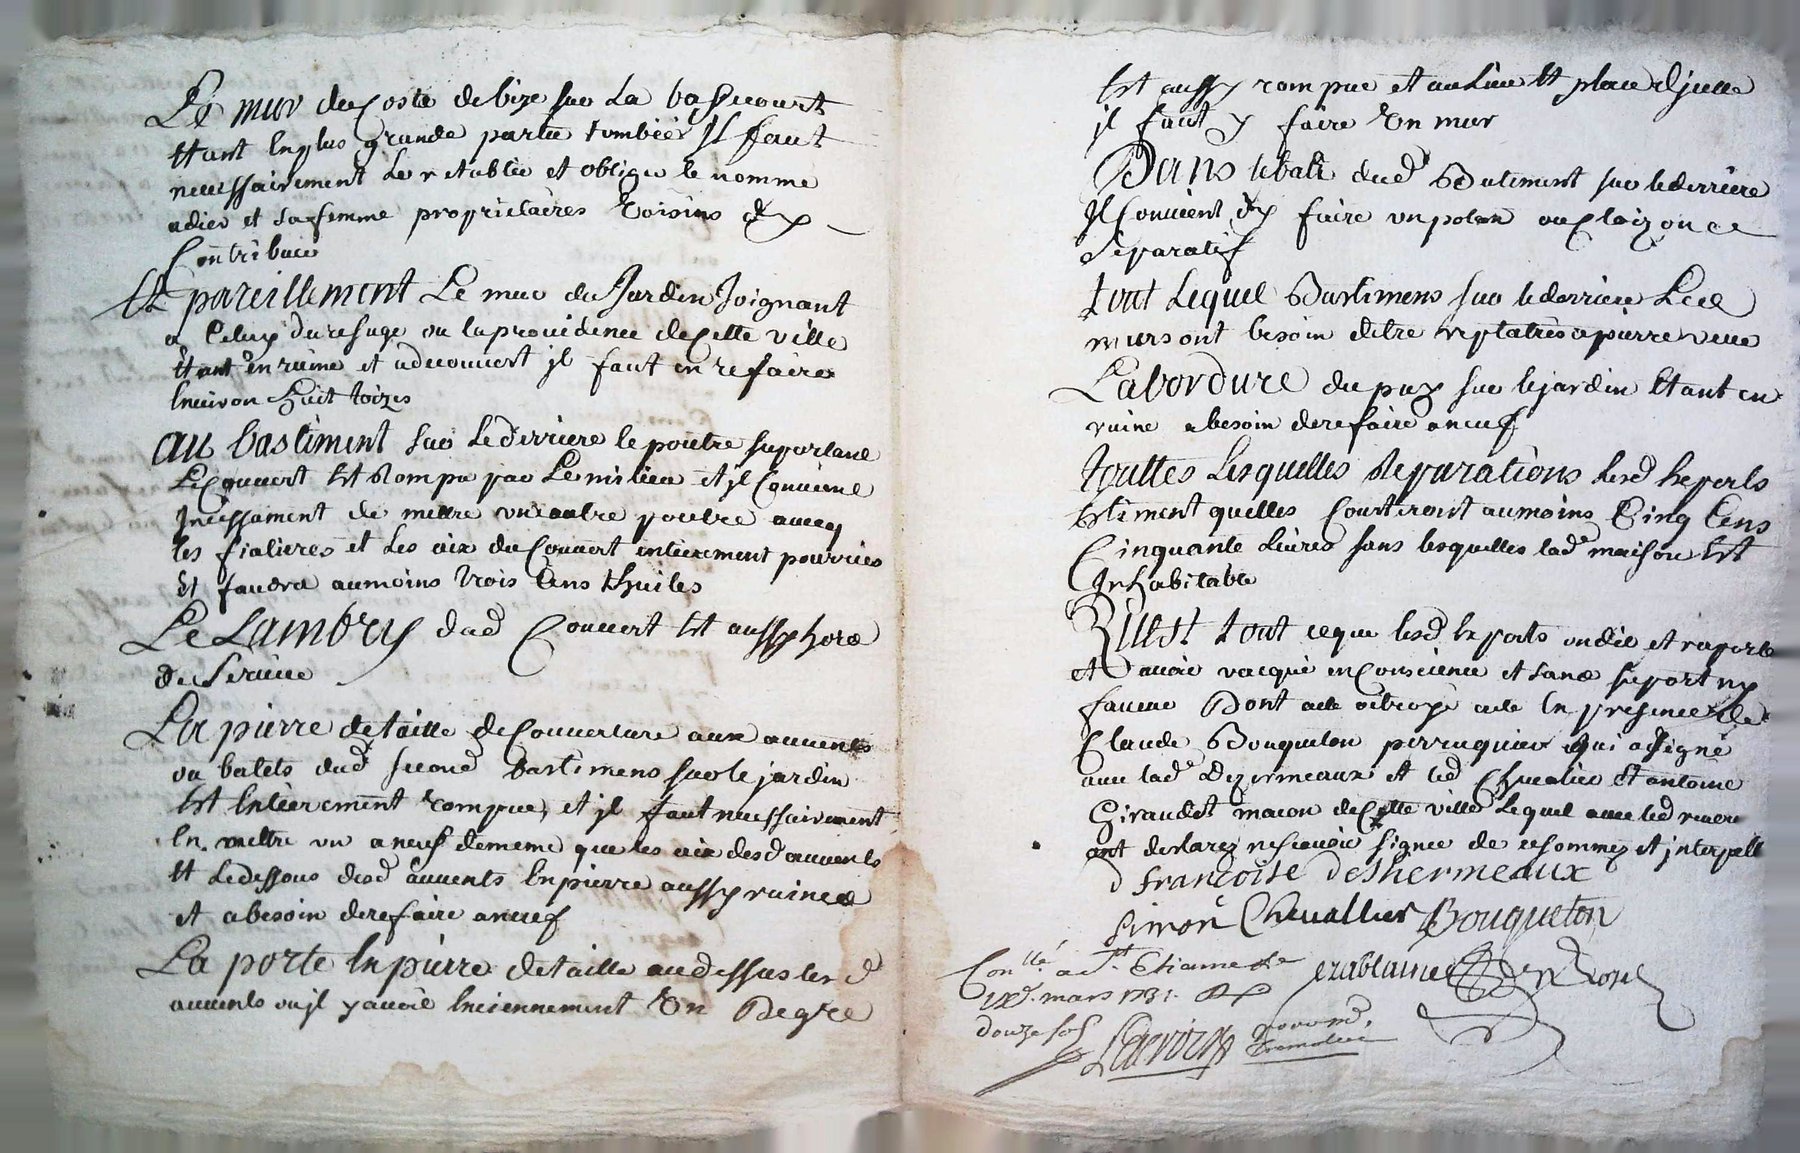 Le mur du Coste de bize sur La basscourt
Etant En plus grande partie tombéé Il faut
necessairement Le retablir et obliger le nomme
adier et sa femme proprietaires voisins d'y
Contribuer
Et pareillement Le mur du Jardin Joignant
a Celuy du refuge ou la providence de Cette ville
Etant en ruine et a decouvert jl faut en refaire
Environ huit toizes
au bastiment sur Le derriere le poutre suportant
Le Couvert Est Rompu par Le milieu et jl Convient
Incessament de mettre un autre poutre avecq
les fialieres et Les aix du Couvert entierement pourries
Et faudra au moins trois Cens thuiles
Le Lambry dud Couvert Est aussy hors
de Service
La pierre de taille de Couverture aux auvents
ou balets dud second bastimens sur le jardin
Est Entierement rompue, et jl faut necessairement
En mettre un a neuf de meme que les aix desd auvents
Et Le dessous desd auvents En pierre aussy ruinee
et a besoin de refaire a neuf
La porte En pierre de taille au dessus desd
auvents ou jl y avoit Enciennement Un Degre
Est aussy rompue et au Lieu Et place djcelle
jl faut y faire Un mur
Dans le bati dud Batiment sur le derriere
Il Convient d'y faire un polan ou Cloizonce
separatif
tout Lequel Bastimens sur le derriere Led
murs ont besoin detre replatrés a pierre veue
La bordure du puy sur le jardin Etant en
ruine a besoin de refaire a neuf
touttes Lesquelles Reparations Lesd Experts
Estiment quelles Couteront au moins Cinq Cens
Cinquante Livres sans lesquelles lade maison Est
Inhabitable
Qui Est tout ce que lesd Experts ont dit et raporté
et avoir vacqué en Conscience et sans suport ny
faveur Dont acte octroyé acte En presence de
Claude Bouqueton perruquier Qui a Signé
avec lade Dezermeaux et led Chevalier Et antoine
Giraudet macon de Cette ville Lequel avec led
ont declarez ne scavoir signer de ce sommes et jnterpellé
d francoise deshermeaux
Simon Chevallier Bouqueton
Conllé a St Etienne Le
mars 1731. R
douze sols